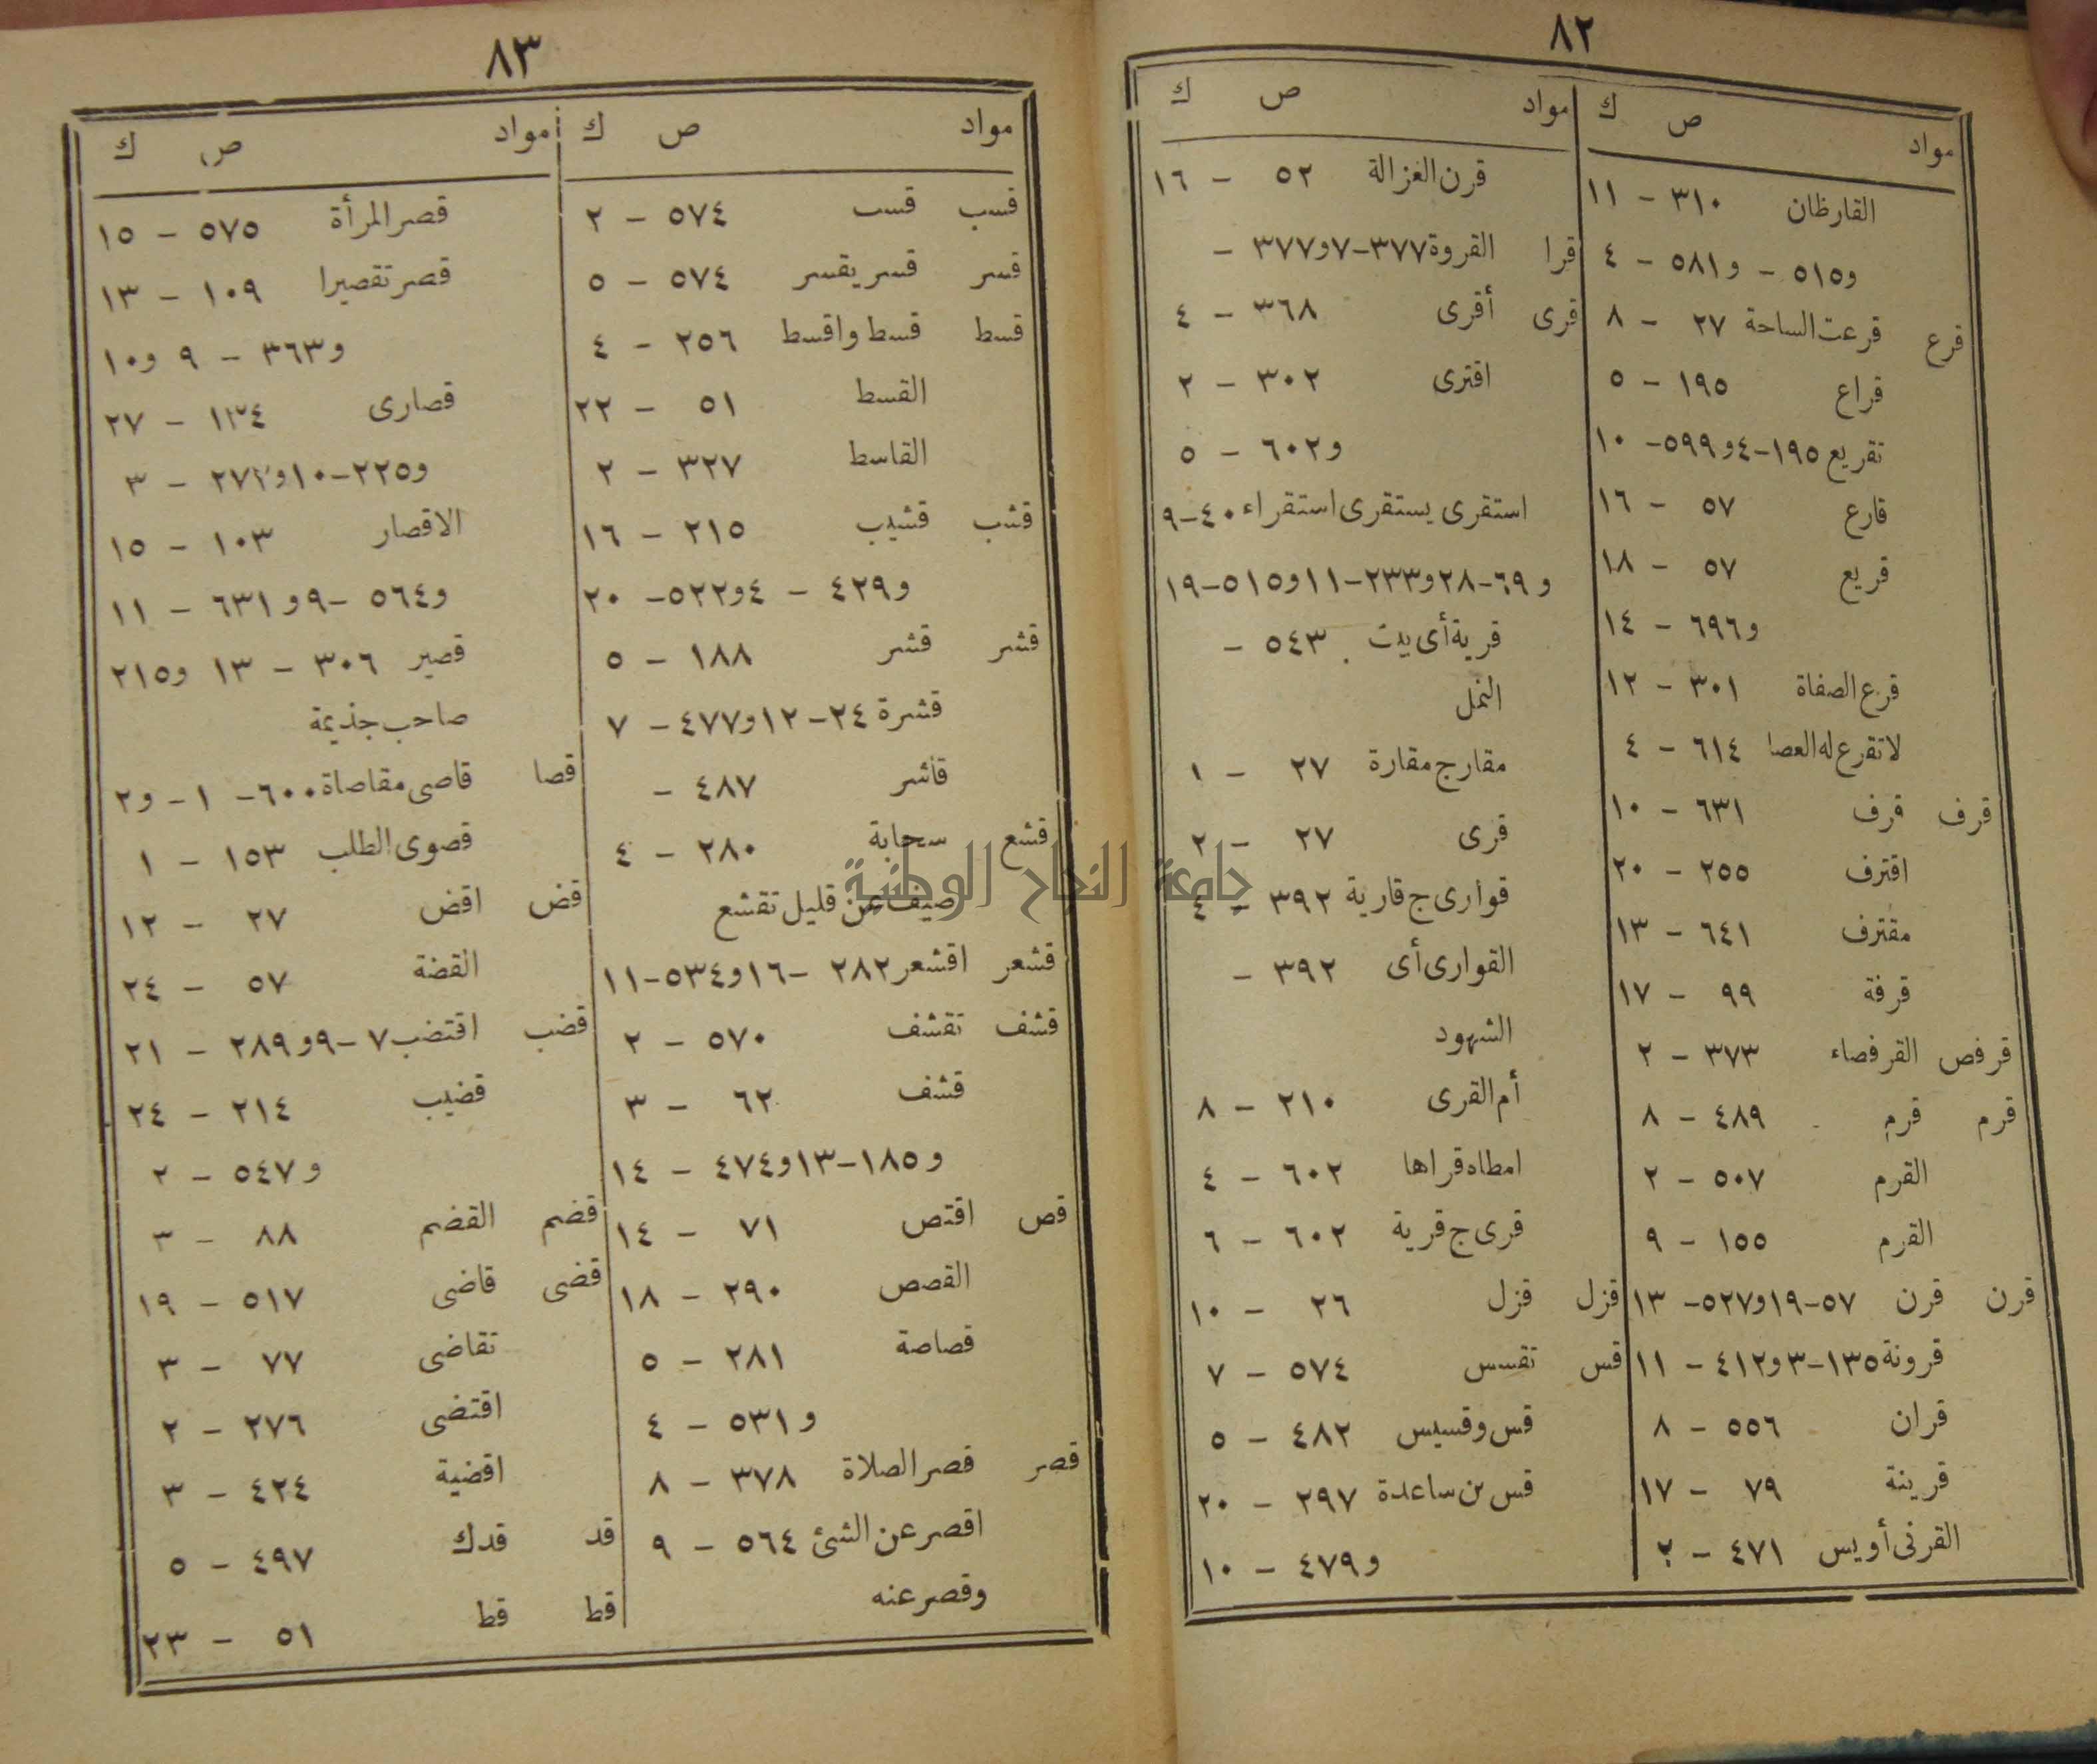 ٨٢
مواد ص ك
القارظان ٣١٠ - ١١
و٥١٥ - و٥٨١ - ٤
قرع قرعت الساحة ٢٧ - ٨
قراع ١٩٥ - ٥
تقريع ١٩٥-٤و٥٩٩- ١٠
قارع ٥٧ - ١٦
قريع ٥٧ - ١٨
و٦٩٦ - ١٤
قرع الصفاة ٣٠١ - ١٢
لا تقرع له العصا ٦١٤ - ٤
قرف قرف ٦٣١ - ١٠
اقترف ٢٥٥ - ٢٠
مقترف ٦٤١ - ١٣
قرفة ٩٩ - ١٧
قرفص القرفصاء ٣٧٣ - ٢
قرم قرم ٤٨٩ - ٨
القرم ٥٠٧ - ٢
القرم ١٥٥ - ٩
قرن قرن ٥٧-١٩و٥٢٧- ١٣
قرونة ١٣٥-٣و٤١٢ - ١١
قران ٥٥٦ - ٨
قرينة ٧٩ - ١٧
القرنى أويس ٤٧١ - ٢
مواد ص ك
قرن الغزالة ٥٢ - ١٦
قرا القروة ٣٧٧-٧و٣٧٧ -
قرى أقرى ٣٦٨ - ٤
اقترى ٣٠٢ - ٢
و٦٠٢ - ٥
استقرى يستقرى استقراء ٤٠-٩
و٦٩-٢٨و٢٣٣-١١و٥١٥-١٩
قرية أى بيت ٥٤٣ -
النمل
مقارج مقارة ٢٧ - ١
قرى ٢٧ - ٢
قوارى ج قارية ٣٩٢ - ٤
القوارى أى ٣٩٢ -
الشهود
أم القرى ٢١٠ - ٨
امطاه قراها ٦٠٢ - ٤
قرى ج قرية ٦٠٢ - ٦
قزل قزل ٢٦ - ١٠
قس تقسس ٥٧٤ - ٧
قس وقسيس ٤٨٢ - ٥
قس بن ساعدة ٢٩٧ - ٢٠
و٤٧٩ - ١٠
٨٣
مواد ص ك
قسب قسب ٥٧٤ - ٢
قسر قسر يقسر ٥٧٤ - ٥
قسط قسط واقسط ٢٥٦ - ٤
القسط ٥١ - ٢٢
القاسط ٣٢٧ - ٢
قشب قشيب ٢١٥ - ١٦
و٤٢٩ - ٤و٥٢٢- ٢٠
قشر قشر ١٨٨ - ٥
قشرة ٢٤-١٢و٤٧٧ - ٧
قاشر ٤٨٧ -
قشع سحابة ٢٨٠ - ٤
صيف عن قليل تقشع
قشعر اقشعر ٢٨٢ -١٦و٥٣٤-١١
قشف تقشف ٥٧٠ - ٢
قشف ٦٢ - ٣
و١٨٥-١٣و٤٧٤ - ١٤
قص اقتص ٧١ - ١٤
القصص ٢٩٠ - ١٨
قصاصة ٢٨١ - ٥
و٥٣١ - ٤
قصر قصر الصلاة ٣٧٨ - ٨
اقصر عن الشئ ٥٦٤ - ٩
وقصر عنه
مواد ص ك
قصر المرأة ٥٧٥ - ١٥
قصر تقصيرا ١٠٩ - ١٣
و٣٦٣ - ٩ و١٠
قصارى ١٣٤ - ٢٧
و٢٢٥-١٠و٢٧٢ - ٣
الاقصار ١٠٣ - ١٥
و٥٦٤ -٩و٦٣١ - ١١
قصير ٣٠٦ - ١٣ و٢١٥
صاحب جذيمة
قصا قاصى مقاصاة ٦٠٠- ١- و٢
قصوى الطلب ١٥٣ - ١
قض اقض ٢٧ - ١٢
القضة ٥٧ - ٢٤
قضب اقتضب ٧ -٩و٢٨٩ - ٢١
قضيب ٢١٤ - ٢٤
و٥٤٧ - ٢
قضم القضم ٨٨ - ٣
قضى قاضى ٥١٧ - ١٩
تقاضى ٧٧ - ٣
اقتضى ٢٧٦ - ٢
اقضية ٤٢٤ - ٣
قد قدك ٤٩٧ - ٥
قط قط ٥١ - ٢٣
جامعة النجاح الوطنية